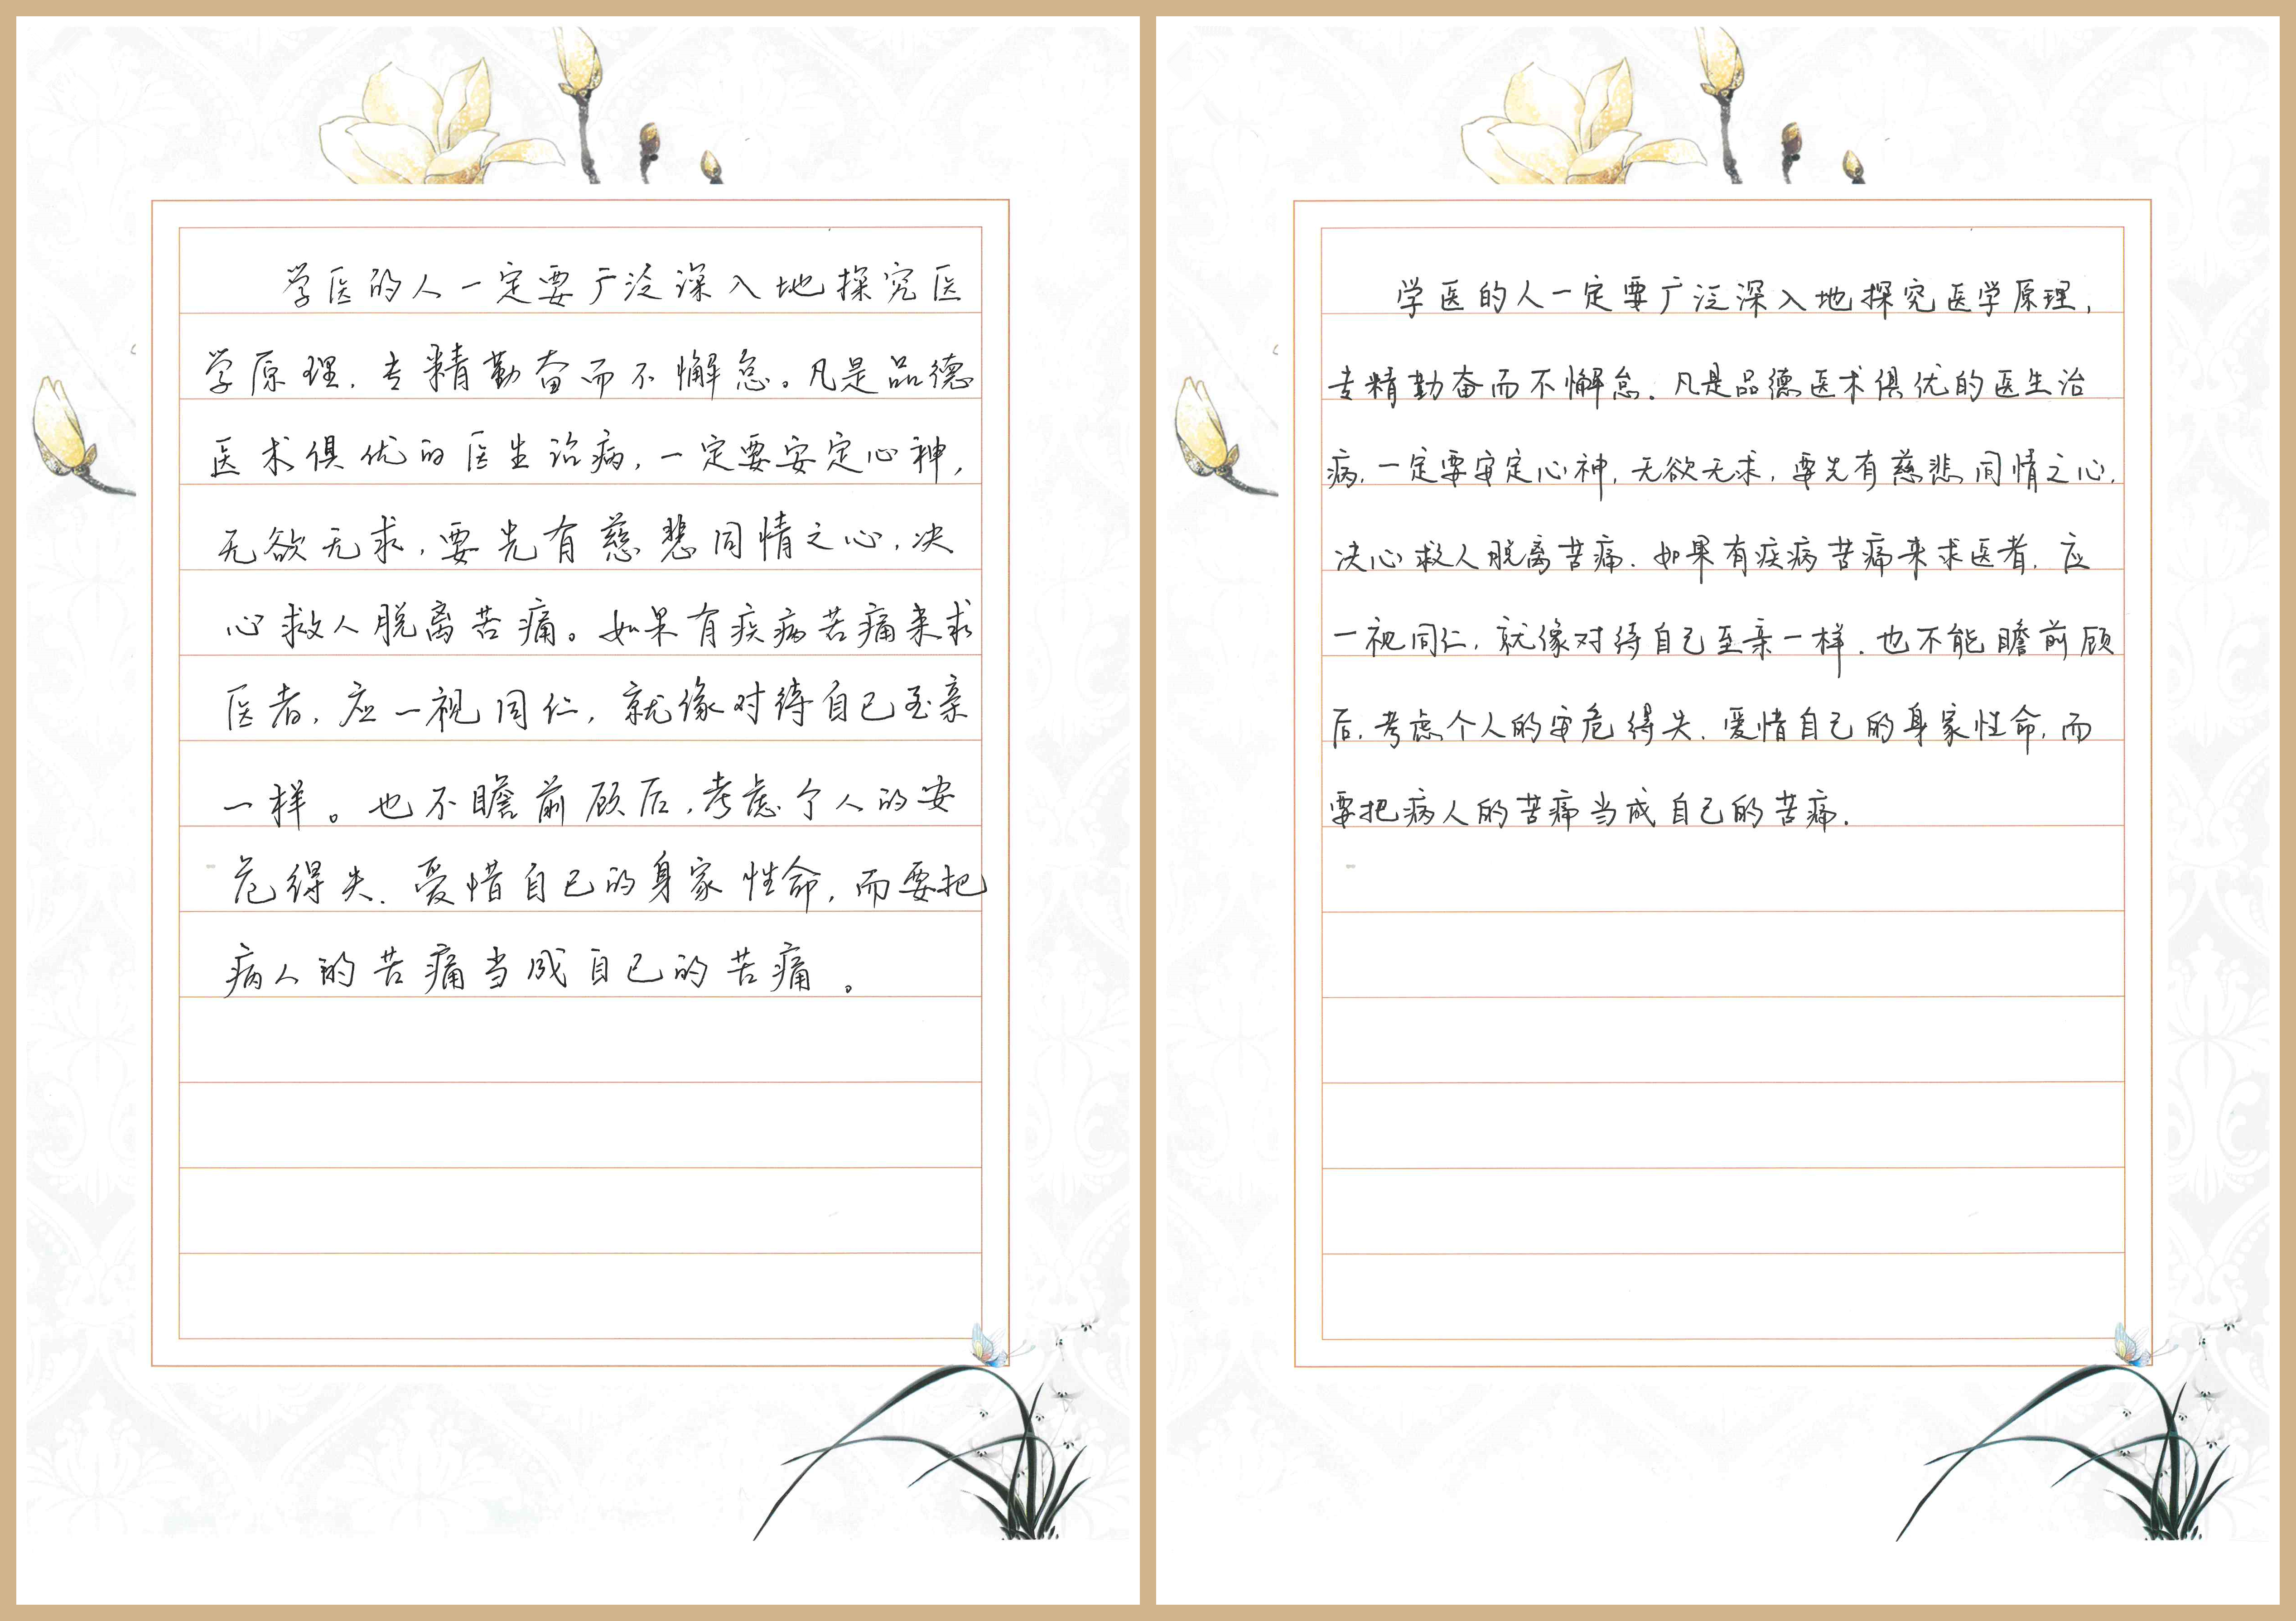 学医的人一定要广泛深入地探究医
学原理.专精勤奋而不懈怠。凡是品德
医术俱优的医生治病,一定要安定心神,
无欲无求,要先有慈悲同情之心,决
心救人脱离苦痛。如果有疾病苦痛来求
医者,应一视同仁,就像对待自己至亲
一样。也不瞻前顾后,考虑个人的安
危得失.爱惜自己的身家性命,而要把
病人的苦痛当成自己的苦痛。
学医的人一定要广泛深入地探究医学原理,
专精勤奋而不懈怠.凡是品德医术俱优的医生治
病.一定要安定心神,无欲无求,要先有慈悲同情之心,
决心救人脱离苦痛.如果有疾病苦痛来求医者.应
一视同仁,就像对待自己至亲一样.也不能瞻前顾
后.考虑个人的安危得失.爱惜自己的身家性命,而
要把病人的苦痛当成自己的苦痛.